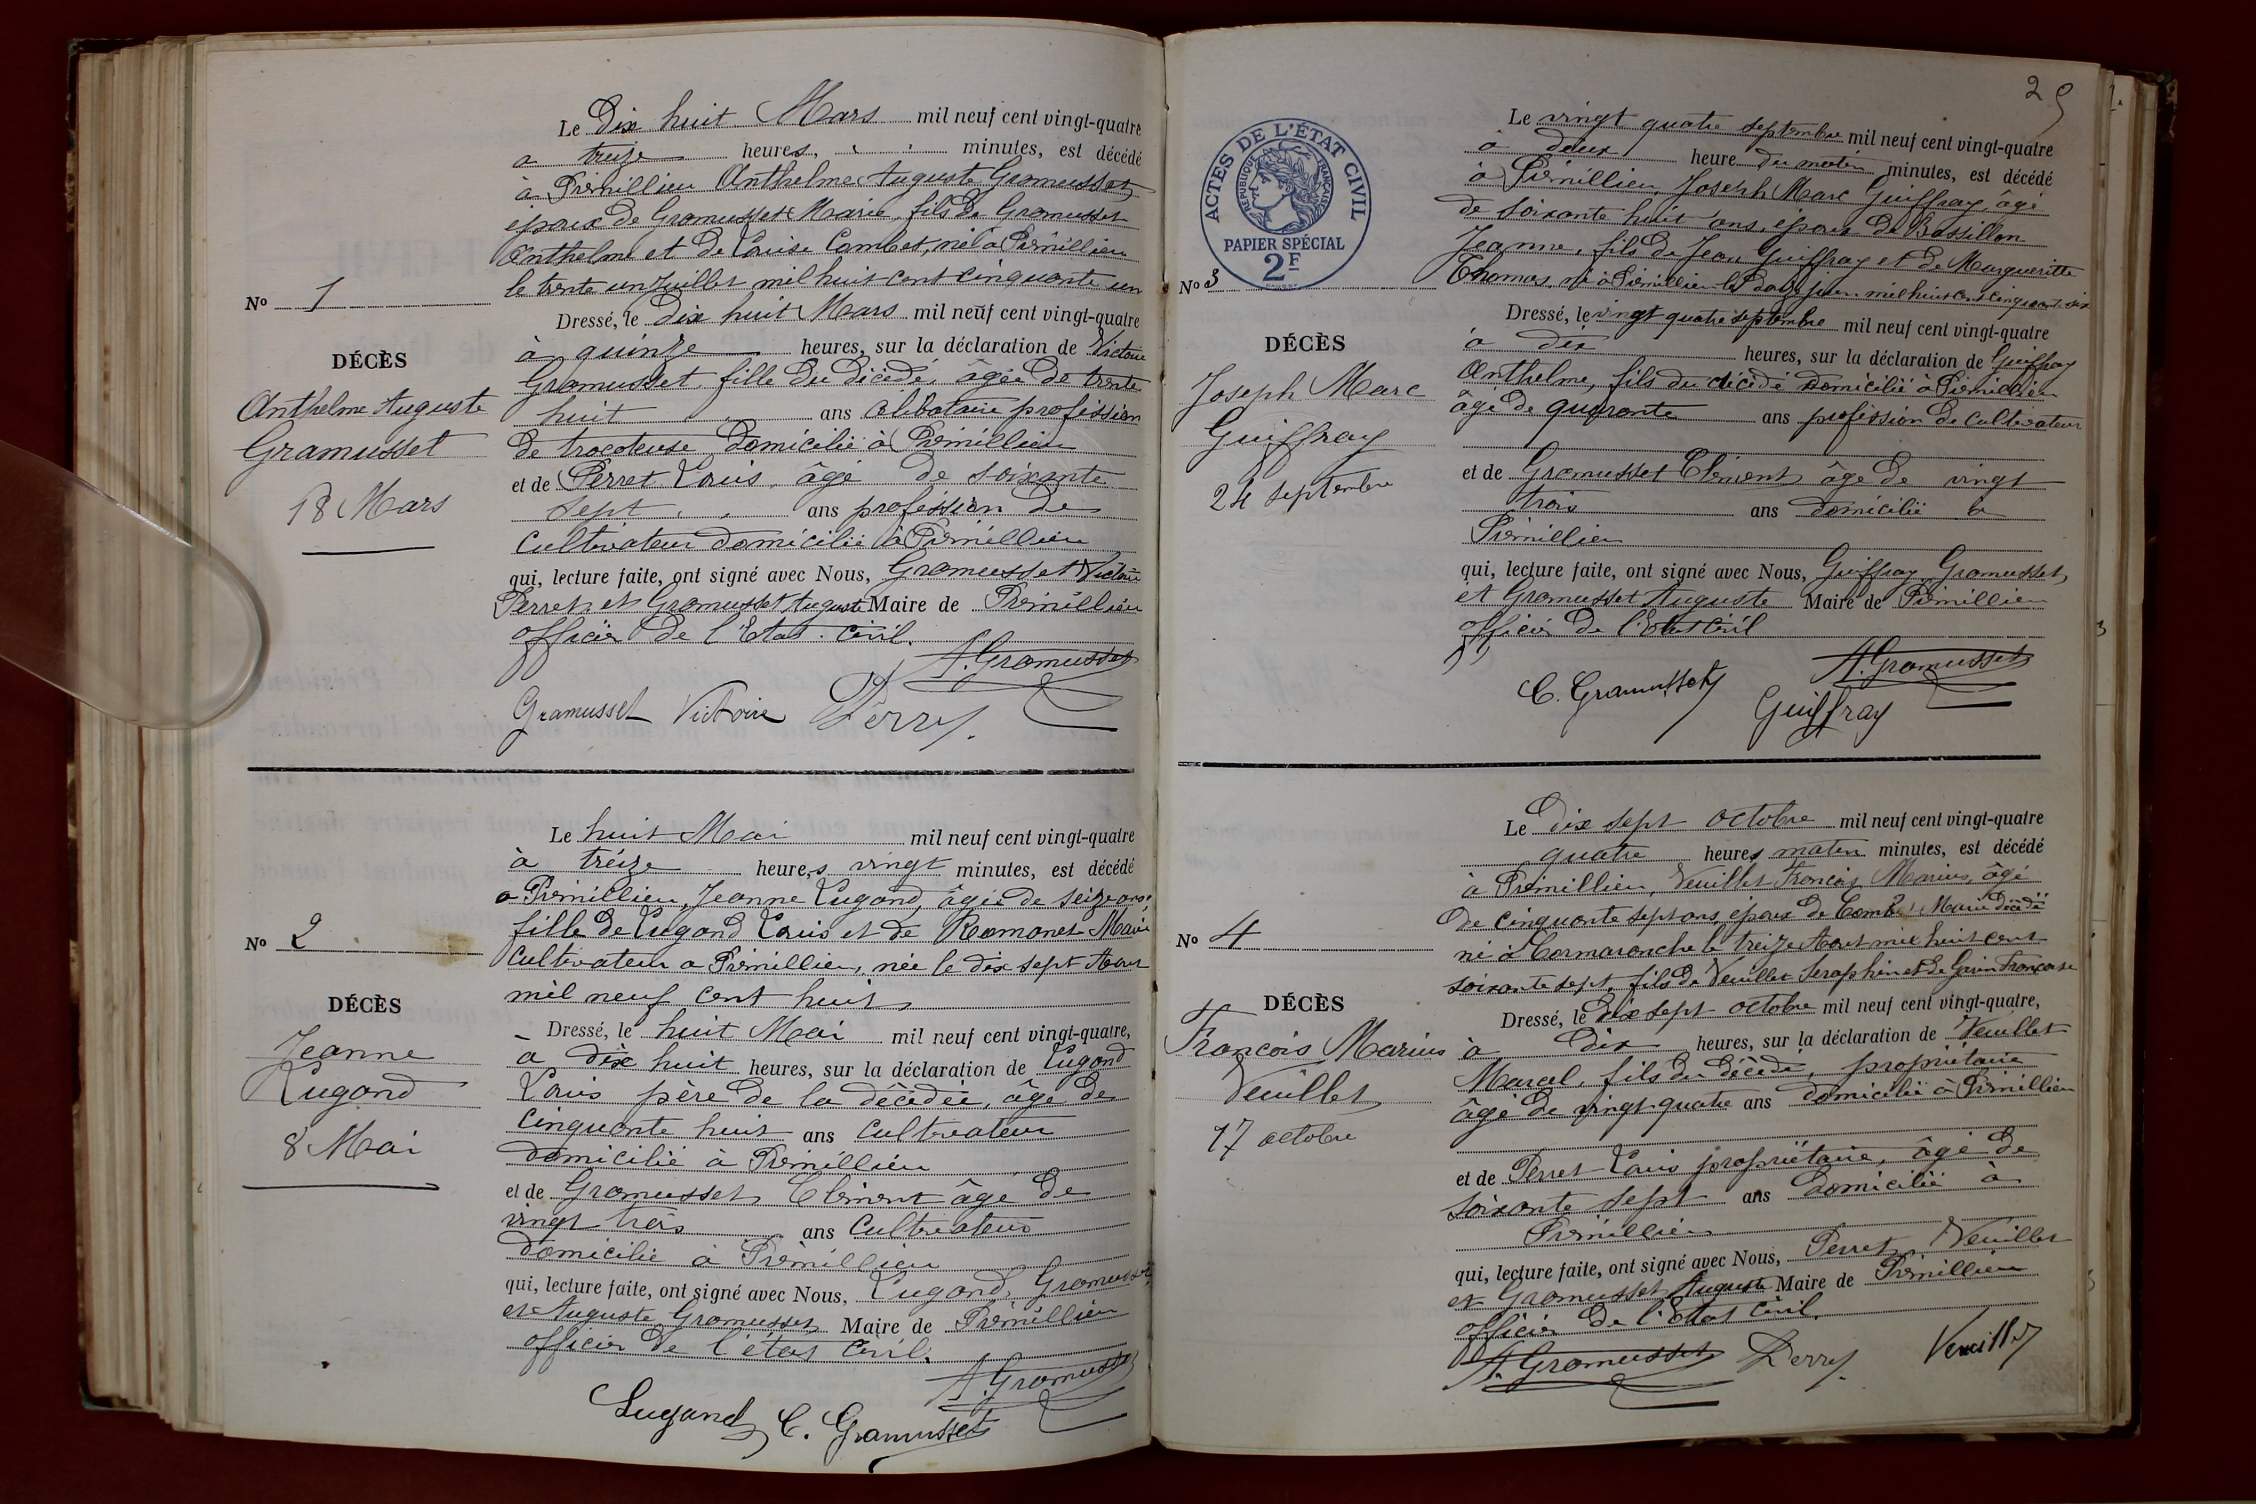 Le Dix huit Mars mil neuf cent vingt-quatre
a treize heures, minutes, est décédé
à Prémillieu Anthelme Auguste Gramusset
époux de Gramusset Marie, fils de Gramusset
Anthelme et de Louise Combet, né à Prémillieu
le trente un Juillet mil huit cent cinquante un
No 1
Dressé, le dix huit Mars mil neuf cent vingt-quatre
à quinze heures, sur la déclaration de Victoire
DÉCÈS
Gramusset, fille du décédé, âgée de trente
Anthelme Auguste
huit ans célibataire profession
Gramusset
de tricoteuse domicilié à Prémillieu
18 Mars
et de Perret Louis, âgé de soixante
sept ans profession de
Cultivateur domicilié à Prémillieu
qui, lecture faite, ont signé avec Nous, Gramusset Victoire
Perret et Gramusset Auguste Maire de Prémillieu
officier de l'Etat civil.
A. Gramusset
Gramusset Victoire Perret
Le huit Mai mil neuf cent vingt-quatre
à tréize heures vingt minutes, est décédé
a Prémillieu, Jeanne Lugand, âgée de seize ans
fille de Lugand Louis et de Romanet Marie
No 2
Cultivateur a Prémillieu, née le dix sept Aout
mil neuf cent huit
DÉCÈS
Dressé, le huit Mai mil neuf cent vingt-quatre,
Jeanne
à dix huit heures, sur la déclaration de Lugand
Lugand
Louis père de la décédée, âgé de
cinquante huit ans cultivateur
8 Mai
domicilié à Prémillieu
et de Gramusset Clément âgé de
vingt trois ans Cultivateur
domicilié à Prémillieu
qui, lecture faite, ont signé avec Nous, Lugand, Gramusset
et Auguste Gramusset Maire de Prémillieu
officier de l'état civil.
A. Gramusset
Lugand C. Gramusset
29
ACTES DE L'ÉTAT CIVIL
RÉPUBLIQUE FRANÇAISE
PAPIER SPÉCIAL
2F
Le vingt quatre septembre mil neuf cent vingt-quatre
à deux heure du matin minutes, est décédé
à Prémillieu, Joseph Marc Guiffray, âgé
de soixante huit ans, époux de Bassillon
Jeanne, fils de Jean Guiffray et de Margueritte
No 3
Thomas, né à Prémillieu le Douze juin mil huit cent cinquante six
Dressé, le vingt quatre septembre mil neuf cent vingt-quatre
DÉCÈS
à dix heures, sur la déclaration de Guiffray
Joseph Marc
Anthelme, fils du décédé domicilié à Prémillieu
Guiffray
âgé de quarante ans profession de cultivateur
24 septembre
et de Gramusset Clément âgé de vingt
trois ans domicilié à
Prémillieu
qui, lecture faite, ont signé avec Nous, Guiffray Gramusset
et Gramusset Auguste Maire de Prémillieu
officier de l'Etat Civil
A. Gramusset
C. Gramusset
Guiffray
Le Dix sept octobre mil neuf cent vingt-quatre
quatre heures matin minutes, est décédé
à Prémillieu, Veuillet François Marius, âgé
de cinquante sept ans, époux de Combet Marie décédé
No 4
né à Cormaranche le treize Aout mil huit cent
soixante sept, fils de Veuillet Seraphin et de Garin Françoise
DÉCÈS
Dressé, le Dix sept octobre mil neuf cent vingt-quatre,
François Marius
à Dix heures, sur la déclaration de Veuillet
Veuillet
Marcel, fils du décédé, propriétaire
17 octobre
âgé de vingt-quatre ans domicilié à Prémillieu
et de Perret Louis propriétaire, âgé de
soixante sept ans domicilié à
Prémillieu
qui, lecture faite, ont signé avec Nous, Perret Veuillet
et Gramusset Auguste Maire de Prémillieu
officier de l'Etat Civil.
A. Gramusset Perret Veuillet